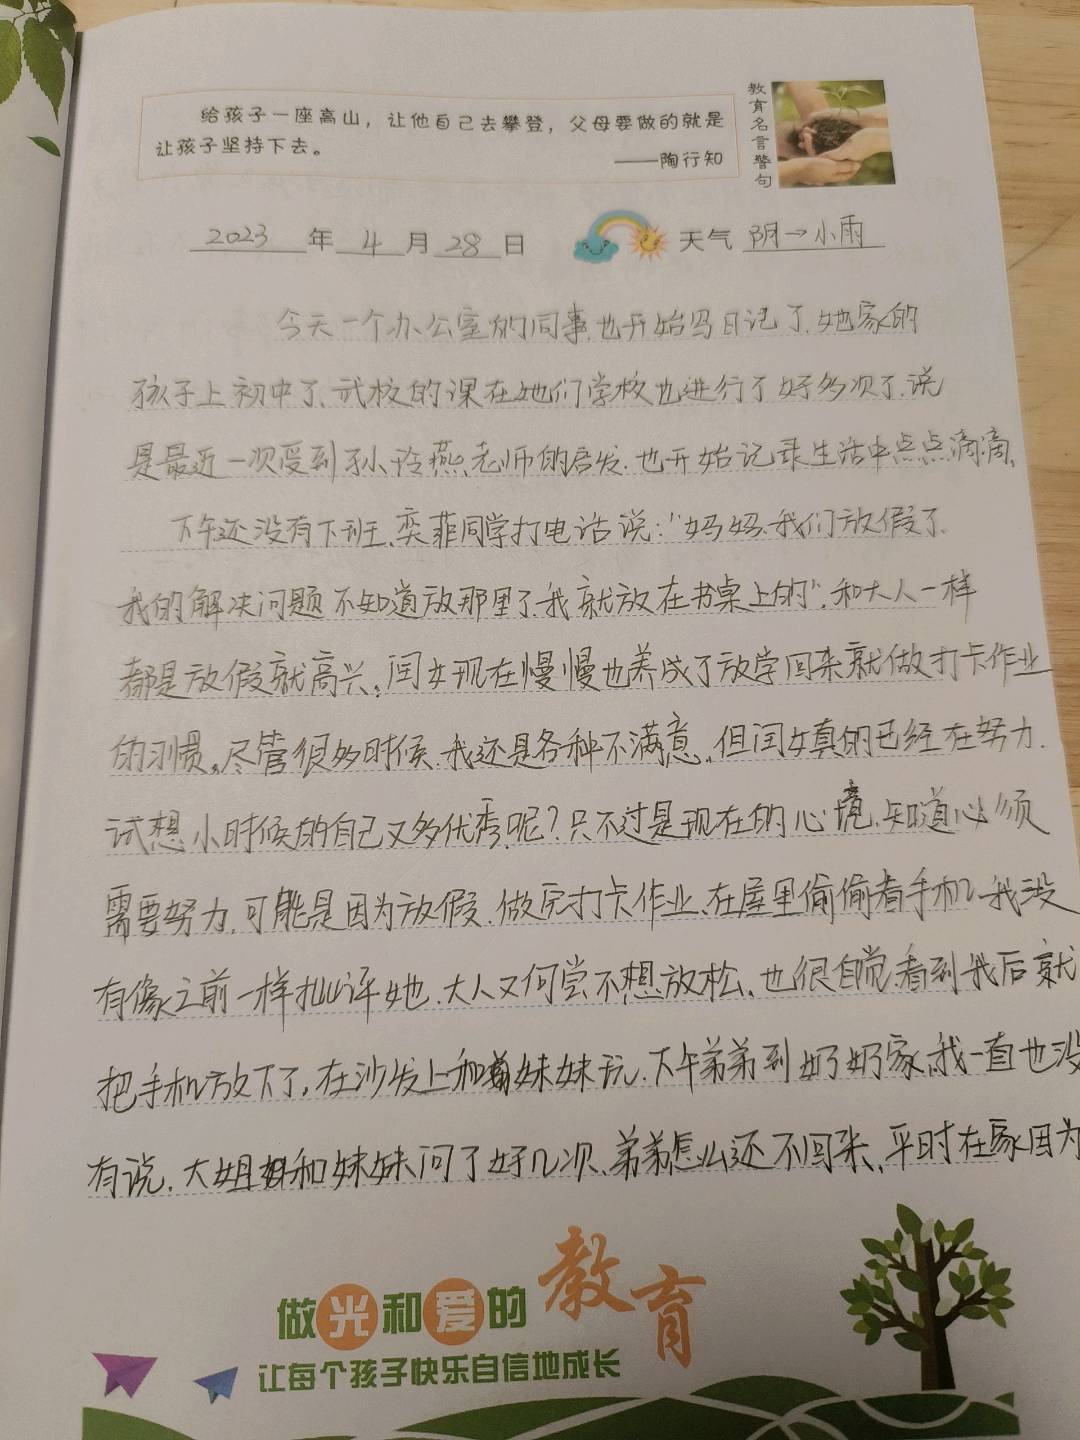 给孩子一座高山，让他自己去攀登，父母要做的就是
让孩子坚持下去。
——陶行知
教育名言警句
2023年4月28日 天气 阴→小雨
今天一个办公室的同事也开始写日记了、她家的
孩子上初中了、武校的课在她们学校也进行了好多次了、说
是最近一次受到孙玲燕老师的启发、也开始记录生活中点点滴滴、
下午还没有下班、奕菲同学打电话说："妈妈、我们放假了、
我的解决问题不知道放那里了、我就放在书桌上的"、和大人一样
都是放假就高兴、闫女现在慢慢也养成了放学回来就做打卡作业
的习惯。尽管很多时候、我还是各种不满意、但闫女真的已经在努力、
试想小时候的自己又多优秀呢？只不过是现在的心境、知道必须
需要努力、可能是因为放假、做完打卡作业、在屋里偷偷看手机、我没
有像之前一样批评她、大人又何尝不想放松、也很自觉、看到我后就
把手机放下了、在沙发上和妹妹玩、下午弟弟到奶奶家、我一直也没
有说、大姐和妹妹问了好几次、弟弟怎么还不回来、平时在家因为
做光和爱的教育
让每个孩子快乐自信地成长